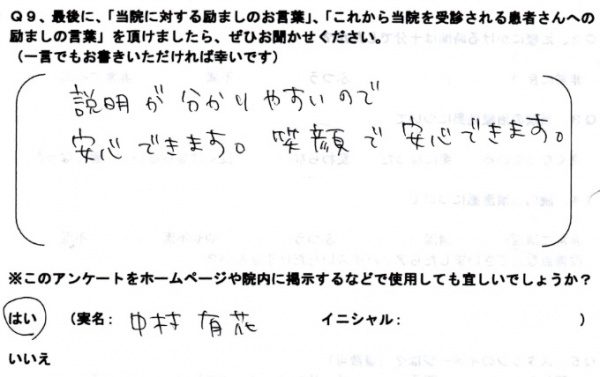 Q9、最後に、「当院に対する励ましのお言葉」、「これから当院を受診される患者さんへの
励ましの言葉」を頂けましたら、ぜひお聞かせください。
(一言でもお書きいただければ幸いです)
説明が分かりやすいので
安心できます。笑顔で安心できます。
※このアンケートをホームページや院内に掲示するなどで使用しても宜しいでしょうか?
はい (実名: 中村有花 イニシャル: )
いいえ